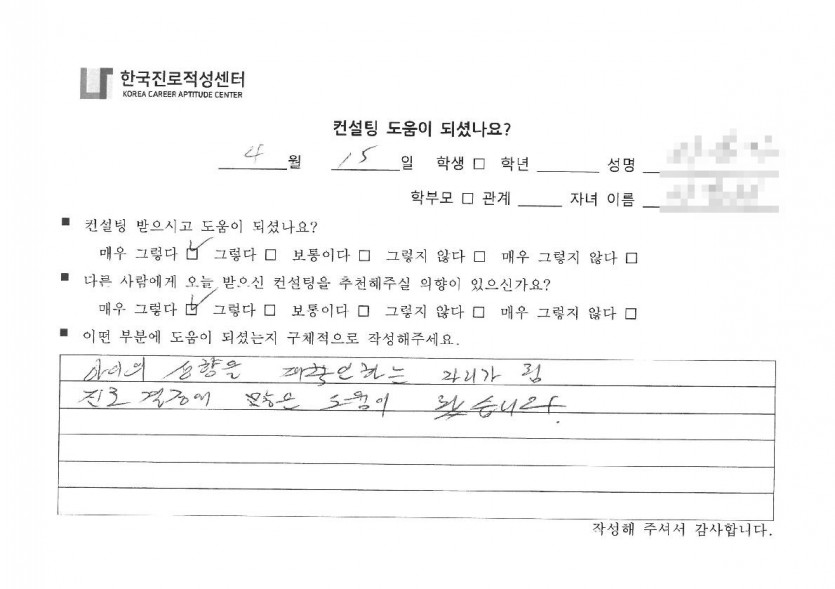 한국진로적성센터
KOREA CAREER APTITUDE CENTER
컨설팅 도움이 되셨나요?
4 월 15 일 학생 □ 학년 성명
학부모 □ 관계 자녀 이름
■ 컨설팅 받으시고 도움이 되셨나요?
매우 그렇다 ☑ 그렇다 □ 보통이다 □ 그렇지 않다 □ 매우 그렇지 않다 □
■ 다른 사람에게 오늘 받으신 컨설팅을 추천해주실 의향이 있으신가요?
매우 그렇다 ☑ 그렇다 □ 보통이다 □ 그렇지 않다 □ 매우 그렇지 않다 □
■ 어떤 부분에 도움이 되셨는지 구체적으로 작성해주세요.
아이의 성향을 재확인하는 자리가 됨
진로 결정에 많은 도움이 됬습니다.
작성해 주셔서 감사합니다.